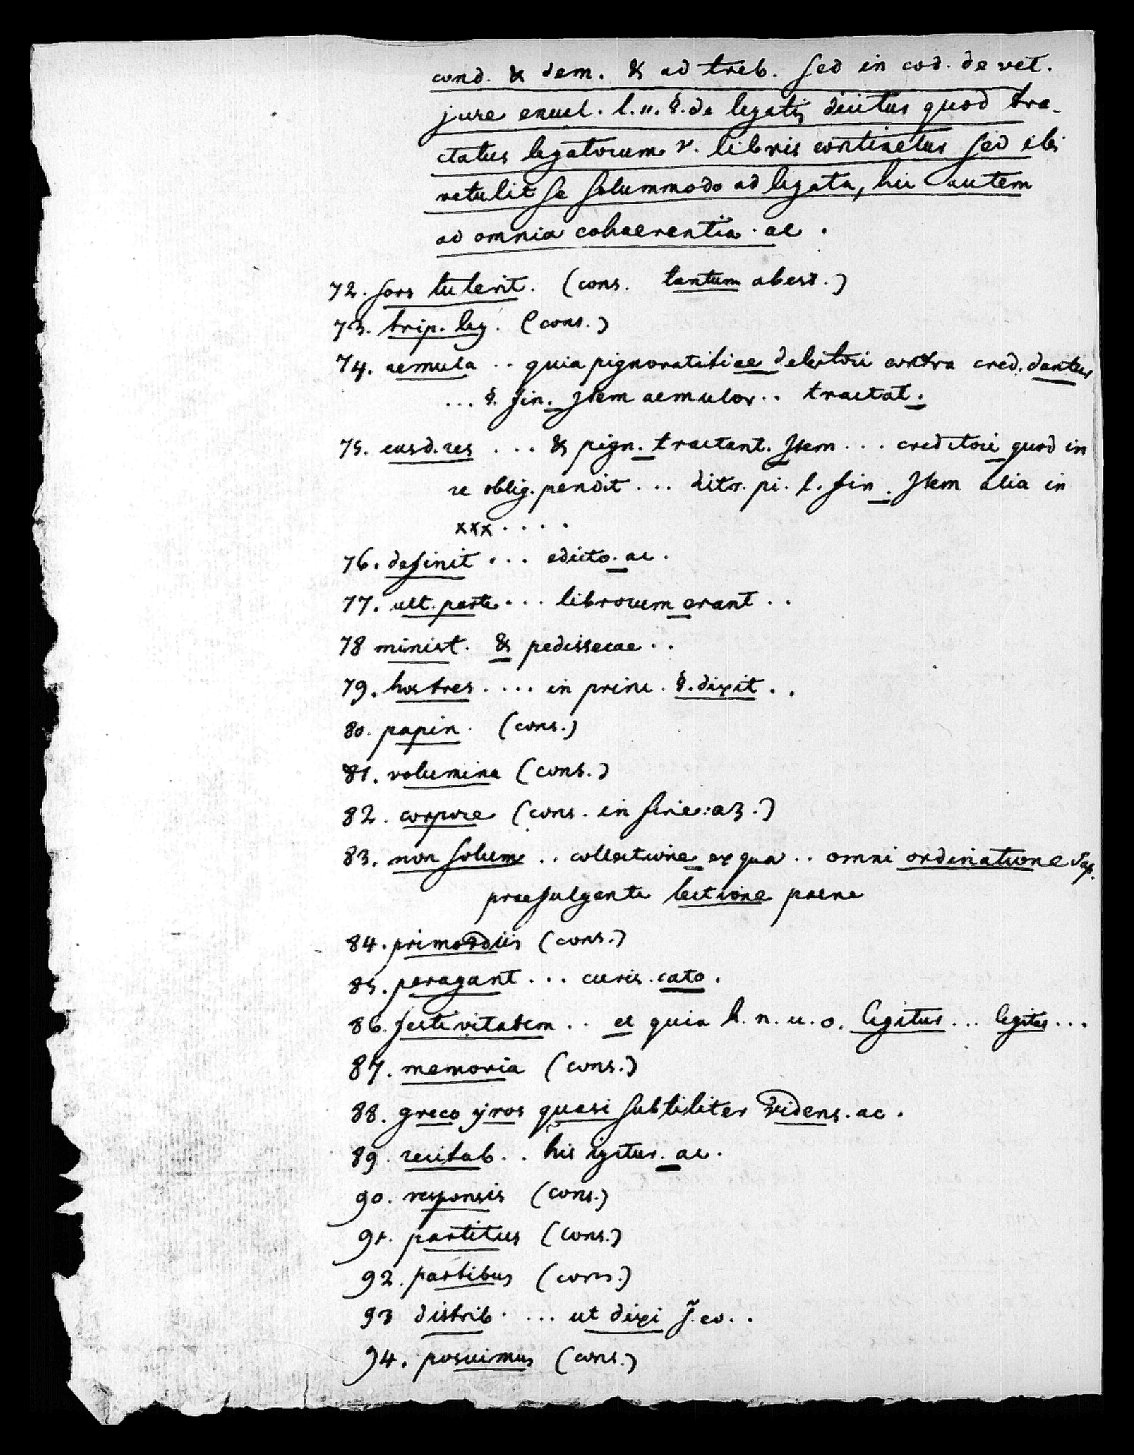 cond. & dem. & ad treb. sed in cod. de vet.
jure enucl. l. ii. §. de legatis dicitus quod tra-
ctatus legatorum v. libris continetus sed ibi
retulit se solummodo ad legata, hic autem
ad omnia cohaerentia. ac.
72. sors tulerit. (cons. tantum abest.)
73. trip. leg. (cons.)
74. aemula .. quia pignoratitiae debitori contra cred. dantus
... §. fin. Item aemulor .. tractat.
75. eusd. res ... & pign. tractant. Item ... creditori quod in
re oblig. pendit ... ditor. pi. l. fin. Item alia in
xxx ....
76. definit ... edicto. ac.
77. ult. parte ... librorum erant ..
78 minist. & pedissecae ..
79. hostres .... in princ. §. dixit ..
80. papin. (cons.)
81. volumina (cons.)
82. corpore (cons. in fine: az.)
83. non solum .. collectione ex qua .. omni ordinatione
praefulgente lectione paene
84. primordiis (cons.)
85. peragant ... curis. cato.
86. festivitatem .. et quia h. n. u. o. legitus ... legitus ...
87. memoria (cons.)
88. greco yros quasi subtiliter ridens. ac.
89. recitab .. his igitur. ac.
90. responsis (cons.)
91. partitus (cons.)
92. partibus (cons.)
93 distrib. ... ut dixi J. eo..
94. posuimus (cons.)